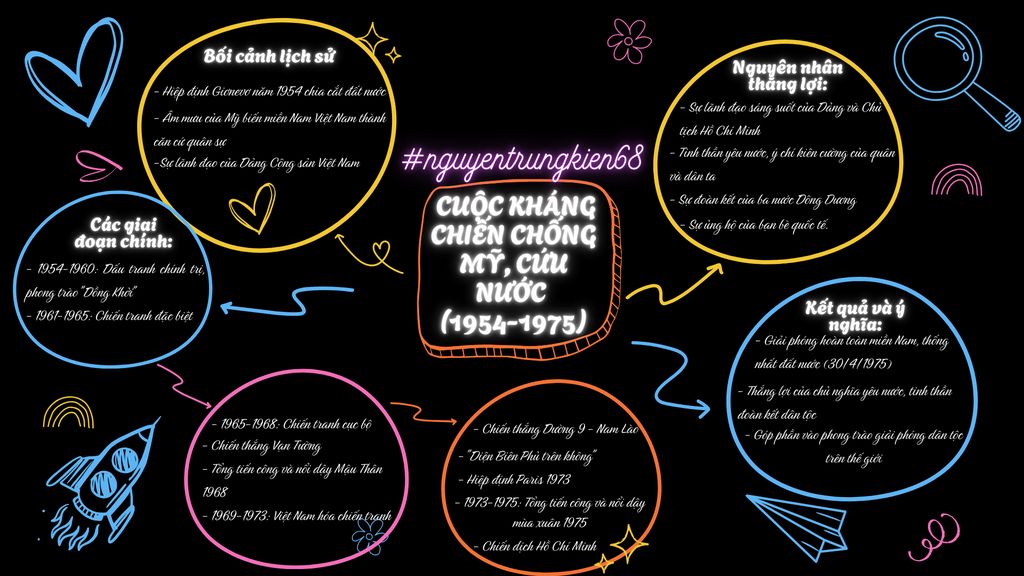 Bối cảnh lịch sử
- Hiệp định Giơnevơ năm 1954 chia cắt đất nước
- Âm mưu của Mỹ biến miền Nam Việt Nam thành
căn cứ quân sự
-Sự lãnh đạo của Đảng Cộng sản Việt Nam
#nguyentrungkien68
CUỘC KHÁNG
CHIẾN CHỐNG
MỸ, CỨU
NƯỚC
(1954-1975)
Nguyên nhân
thắng lợi:
- Sự lãnh đạo sáng suốt của Đảng và Chủ
tịch Hồ Chí Minh
- Tinh thần yêu nước, ý chí kiên cường của quân
và dân ta
- Sự đoàn kết của ba nước Đông Dương
- Sự ủng hộ của bạn bè quốc tế.
Các giai
đoạn chính:
- 1954-1960: Đấu tranh chính trị,
phong trào "Đồng Khởi"
- 1961-1965: Chiến tranh đặc biệt
Kết quả và ý
nghĩa:
- Giải phóng hoàn toàn miền Nam, thống
nhất đất nước (30/4/1975)
- Thắng lợi của chủ nghĩa yêu nước, tinh thần
đoàn kết dân tộc
- Góp phần vào phong trào giải phóng dân tộc
trên thế giới
- 1965-1968: Chiến tranh cục bộ
- Chiến thắng Vạn Tường
- Tổng tiến công và nổi dậy Mậu Thân
1968
- 1969-1973: Việt Nam hóa chiến tranh
- Chiến thắng Đường 9 - Nam Lào
- "Điện Biên Phủ trên không"
- Hiệp định Paris 1973
- 1973-1975: Tổng tiến công và nổi dậy
mùa xuân 1975
- Chiến dịch Hồ Chí Minh